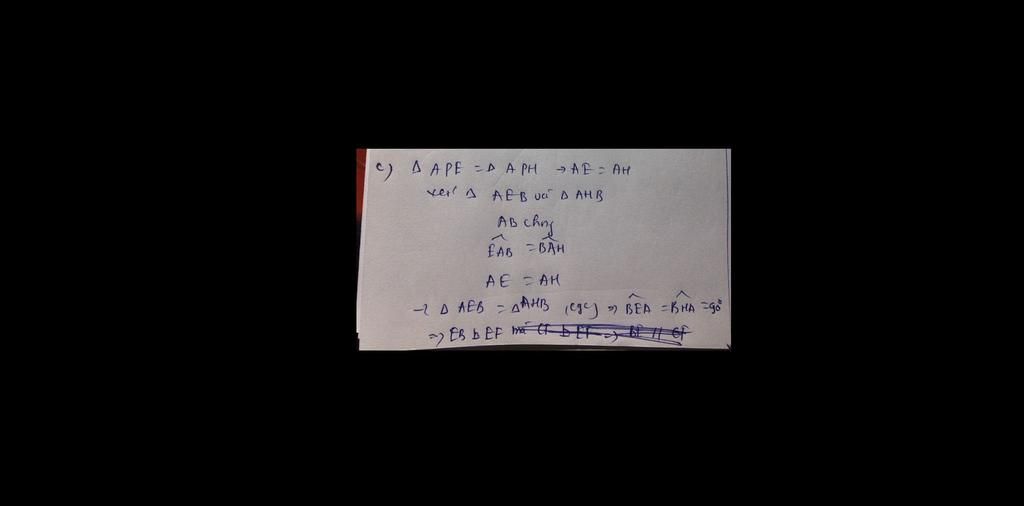 c) Δ APE = Δ APH → AE = AH
xét Δ AEB và Δ AHB
AB chng
EAB = BAH
AE = AH
→ Δ AEB = Δ AHB (cgc) => BEA = BHA = 90°
=> EB ⊥ EF